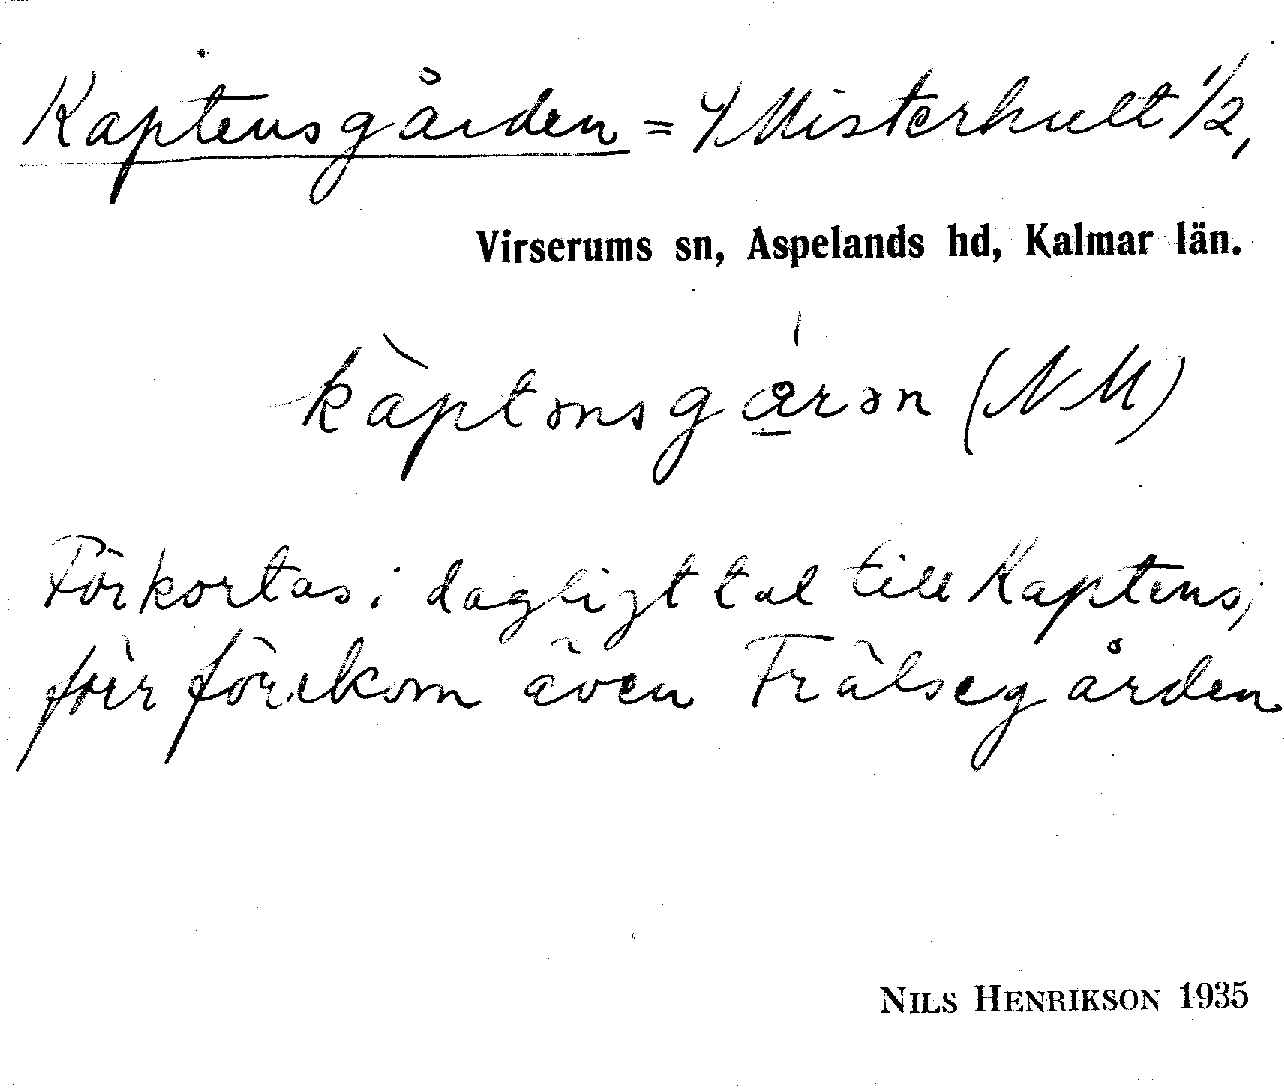 Kaptensgården = i/ Misterhult 1/2,
Virserums sn, Aspelands hd, Kalmar län.
kàptənsgå̱rən (NM)
Förkortas i dagligt tal till Kaptens;
förr förekom även Frälsegården
NILS HENRIKSON 1935